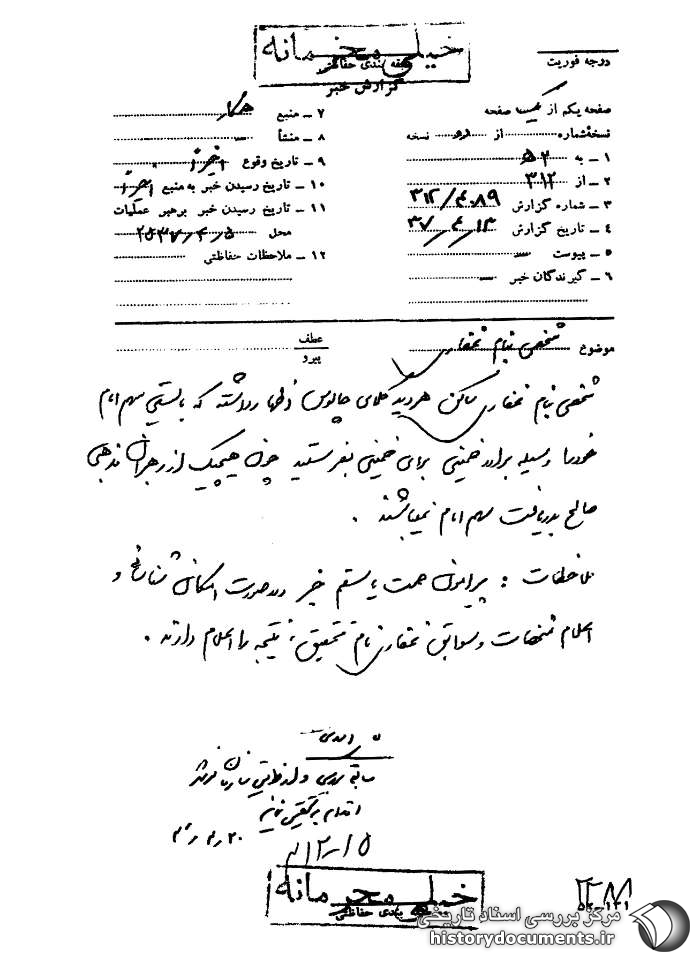 خیلی محرمانه
طبقه بندی حفاظتی
گزارش خبر
درجه فوریت
صفحه یکم از یک صفحه
نسخه شماره از نسخه
۱ – به ۵۲
۲ – از ۳۱۲
۳ – شماره گزارش ۳۱۲/۴۰۸۹
۴ – تاریخ گزارش ۳۷/۴/۱۳
۵ – پیوست –
۶ – گیرندگان خبر –
۷ – منبع همکار
۸ – منشأ –
۹ – تاریخ وقوع اخیراً
۱۰ – تاریخ رسیدن خبر به منبع اخیراً
۱۱ – تاریخ رسیدن خبر برهبر عملیات
محل ۲۵۳۷/۴/۵
۱۲ – ملاحظات حفاظتی
موضوع شخصی بنام غفاری
عطف
پیرو
شخصی بنام غفاری ساکن هردرود کلای چالوس اظهار داشته که بایستی سهم امام
خود را وسیله برادر خمینی برای خمینی بفرستید چون هیچیک از رهبران مذهبی
صالح بدریافت سهم امام نمیباشند .
ملاحظات : پیرامون صحت یا سقم خبر و در صورت امکان شناسائی و
اعلام مشخصات و سوابق غفاری نام تحقیق، نتیجه را اعلام دارند .
اقدام
خیلی محرمانه
طبقه بندی حفاظتی
مرکز بررسی اسناد تاریخی
historydocuments.ir